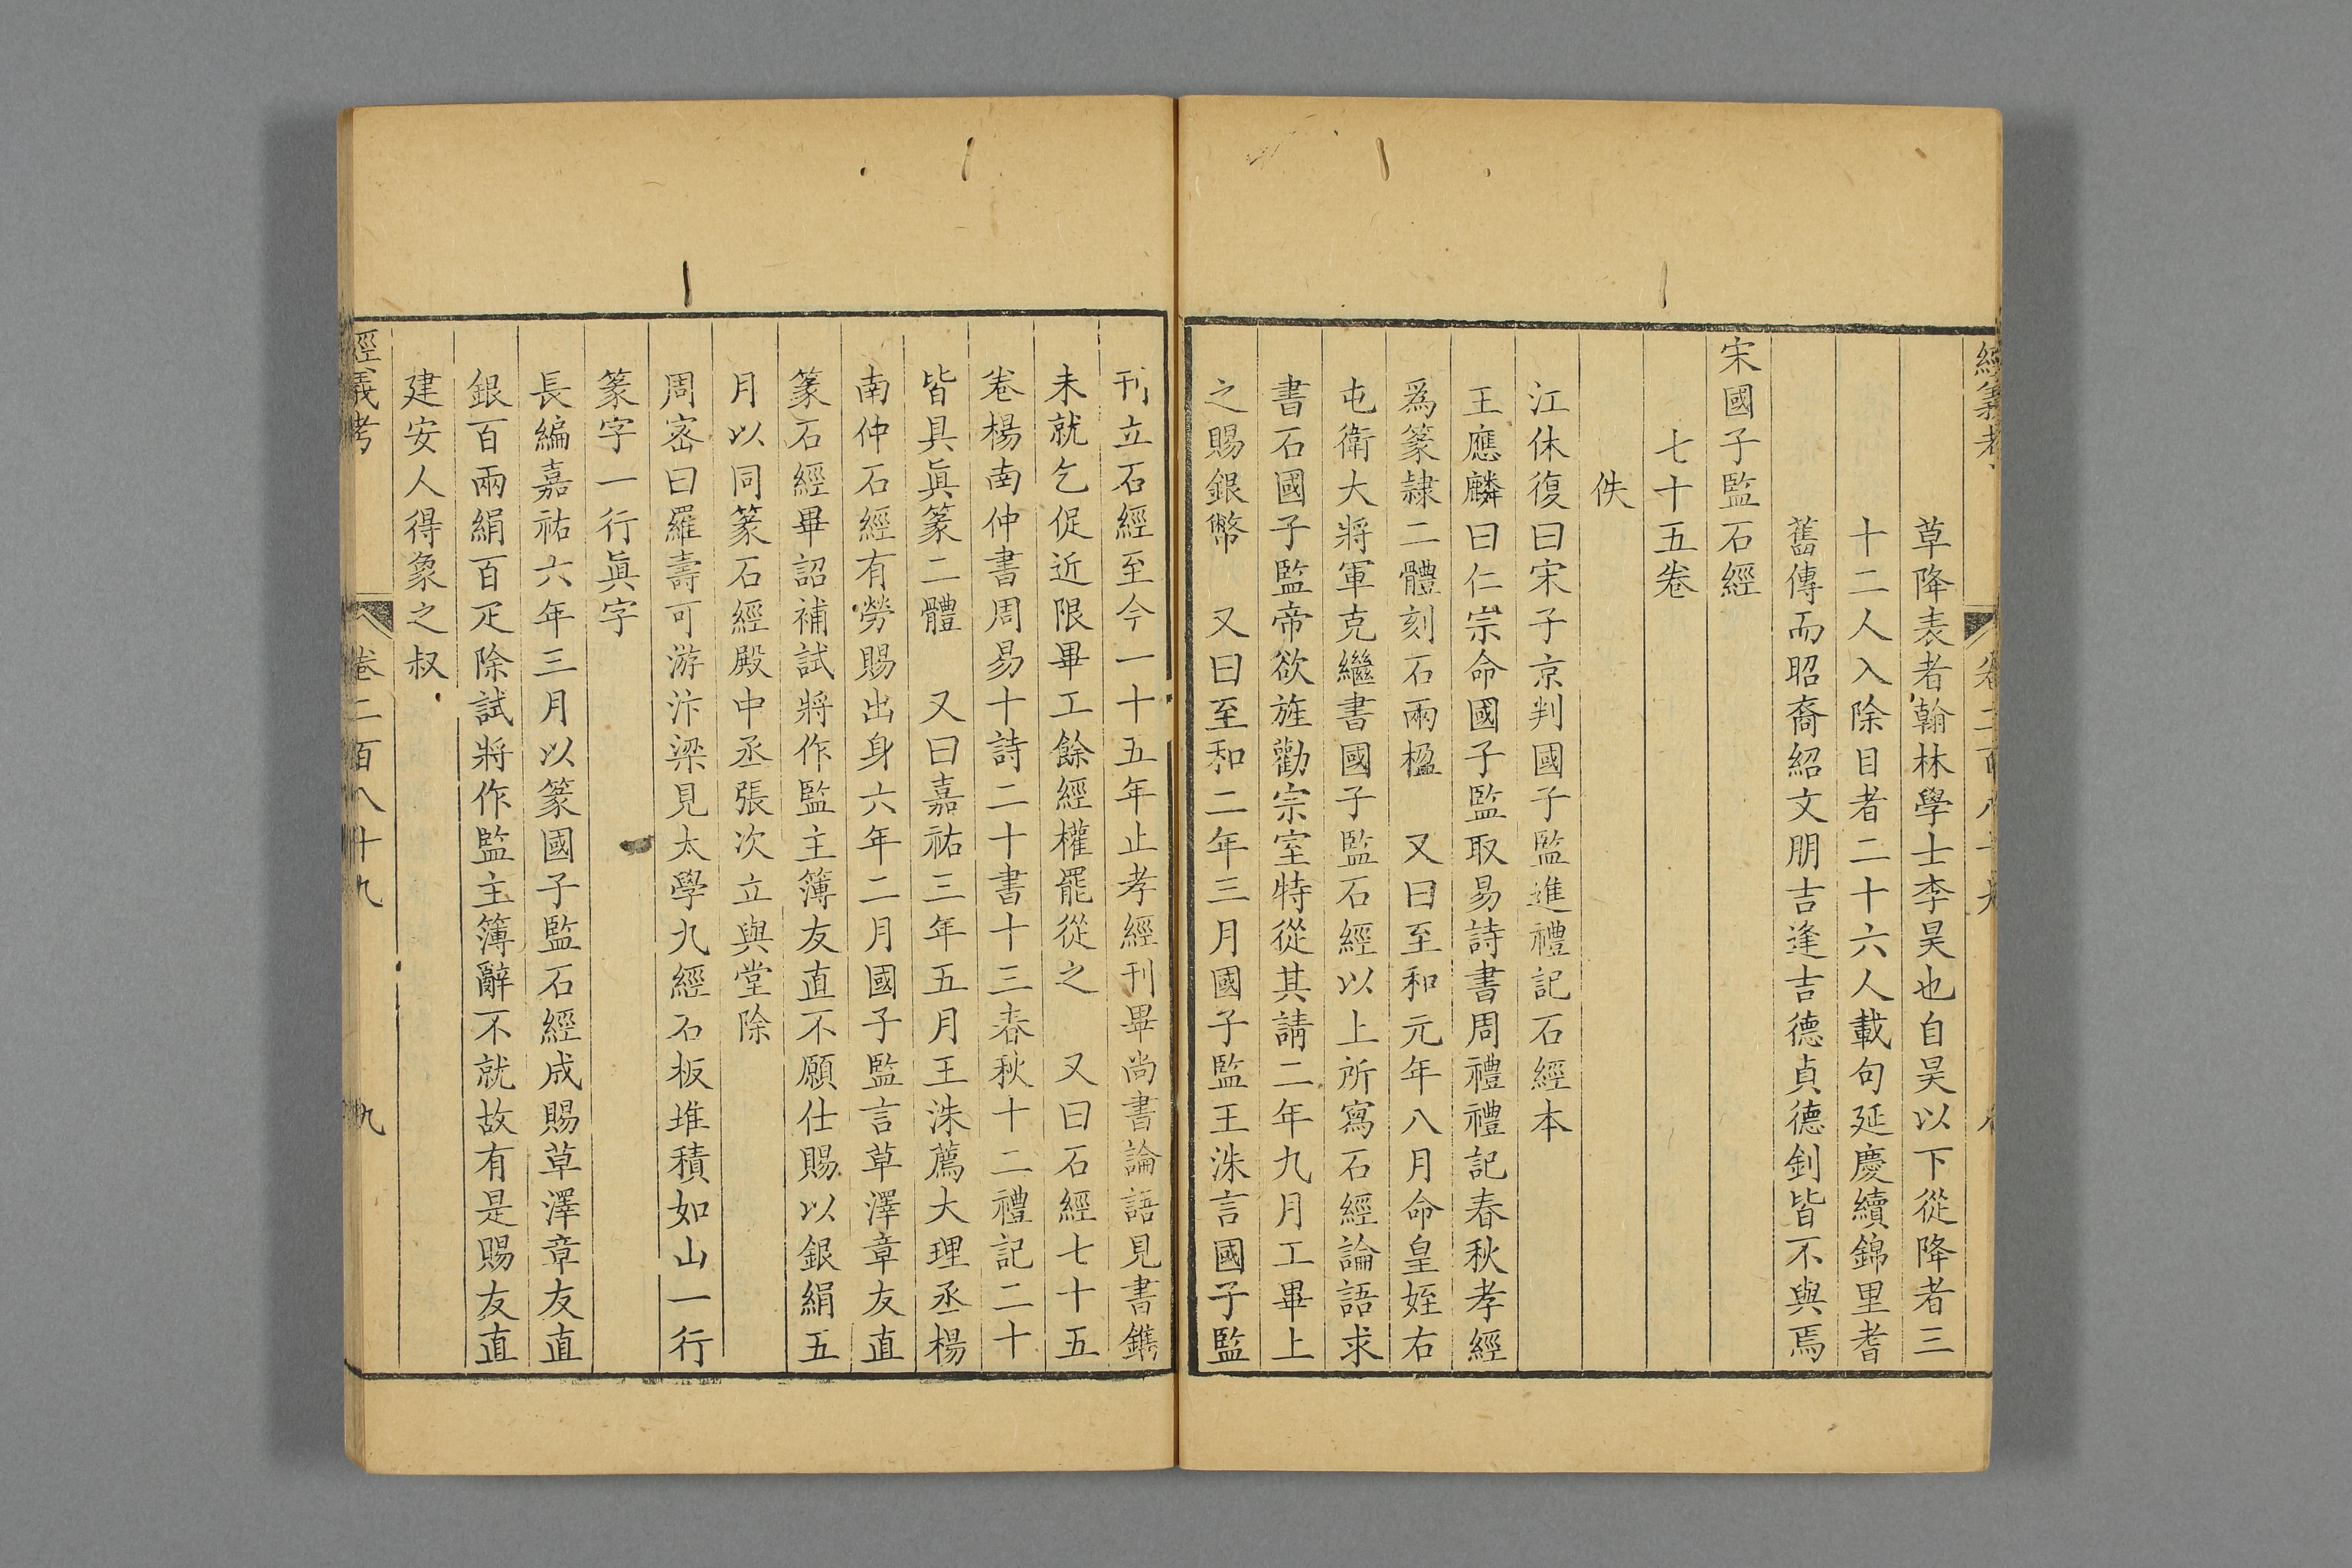 經義考 卷二百八十九
草降表者翰林學士李昊也自昊以下從降者三
十二人入除目者二十六人載句延慶續錦里耆
舊傳而昭裔紹文朋吉逢吉德貞德釗皆不與焉
宋國子監石經
七十五卷
佚
江休復曰宋子京判國子監進禮記石經本
王應麟曰仁宗命國子監取易詩書周禮禮記春秋孝經
爲篆隸二體刻石兩楹 又曰至和元年八月命皇姪右
屯衛大將軍克繼書國子監石經以上所寫石經論語求
書石國子監帝欲旌勸宗室特從其請二年九月工畢上
之賜銀幣 又曰至和二年三月國子監王洙言國子監
刊立石經至今一十五年止孝經刊畢尚書論語見書鐫
未就乞促近限畢工餘經權罷從之 又曰石經七十五
卷楊南仲書周易十詩二十書十三春秋十二禮記二十
皆具眞篆二體 又曰嘉祐三年五月王洙薦大理丞楊
南仲石經有勞賜出身六年二月國子監言草澤章友直
篆石經畢詔補試將作監主簿友直不願仕賜以銀絹五
月以同篆石經殿中丞張次立與堂除
周密曰羅壽可游汴梁見太學九經石板堆積如山一行
篆字一行眞字
長編嘉祐六年三月以篆國子監石經成賜草澤章友直
銀百兩絹百疋除試將作監主簿辭不就故有是賜友直
建安人得象之叔
經義考 卷二百八十九 九